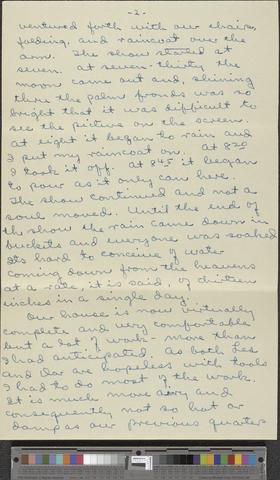 -2-
ventured forth with our chairs,
folding, and raincoat over the
arm. The show started at
seven. at seven-thirty the
moon came out and, shining
thru the palm fronds was so
bright that it was difficult to
see the picture on the screen.
at eight it began to rain and
I put my raincoat on. At 8:20
I took it off. at 8:45 it began
to pour as it only can here.
The show continued and not a
soul moved. Until the end of
the show the rain came down in
buckets and everyone was soaked
Its hard to conceive of water
coming down from the heavens
at a rate, it is said, of thirteen
inches in a single day.
Our house is now virtually
complete and very comfortable
but a lot of work - more than
I had anticipated. As both Les
and are hopeless with tools
I had to do most of the work.
It is much more airy and
consequently not so hot or
damp as our previous quarters